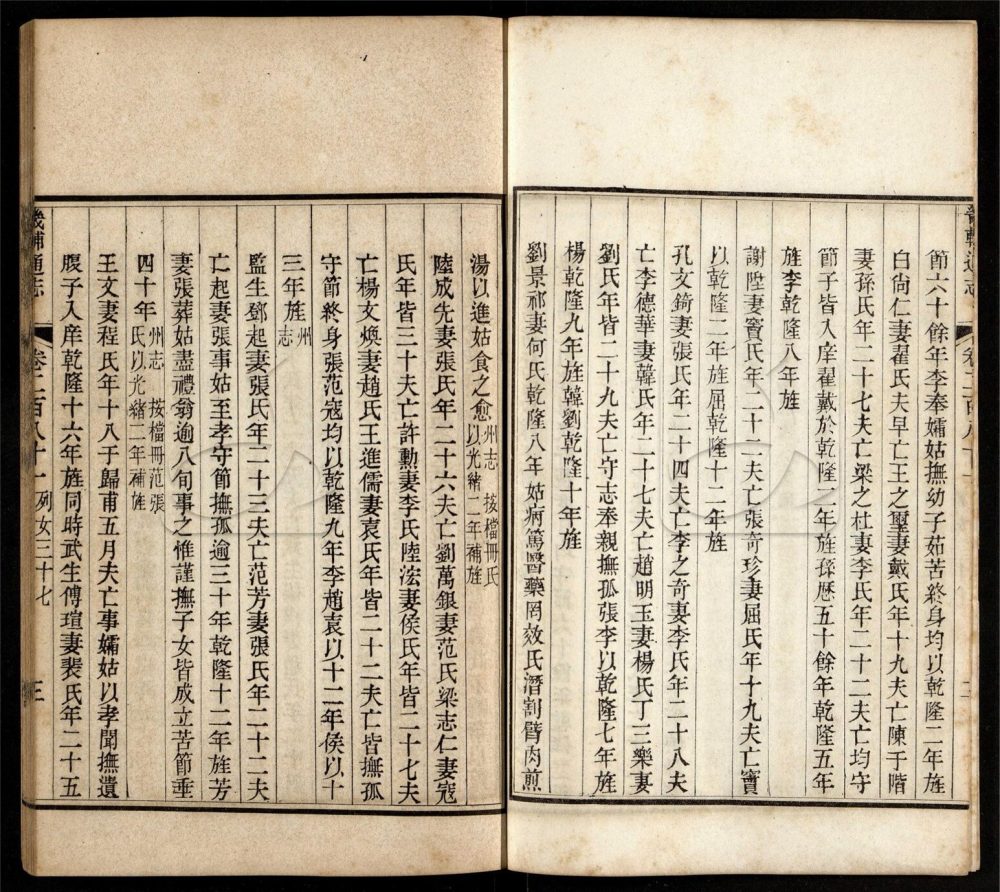 節六十餘年李奉孀姑撫幼子茹苦終身均以乾隆二年旌
白尙仁妻翟氏夫早亡王之璽妻戴氏年十九夫亡陳于階
妻孫氏年二十七夫亡梁之杜妻李氏年二十二夫亡均守
節子皆入庠翟戴於乾隆二年旌孫歷五十餘年乾隆五年
旌李乾隆八年旌
謝陞妻竇氏年二十二夫亡張奇珍妻屈氏年十九夫亡竇
以乾隆二年旌屈乾隆十二年旌
孔文錡妻張氏年二十四夫亡李之奇妻李氏年二十八夫
亡李德華妻韓氏年二十七夫亡趙明玉妻楊氏丁三樂妻
劉氏年皆二十九夫亡守志奉親撫孤張李以乾隆七年旌
楊乾隆九年旌韓劉乾隆十年旌
劉景祁妻何氏乾隆八年姑病篤醫藥罔效氏潛割臂肉煎
湯以進姑食之愈州志 按檔冊氏以光緒二年補旌
陸成先妻張氏年二十六夫亡劉萬銀妻范氏梁志仁妻寇
氏年皆三十夫亡許勳妻李氏陸浤妻侯氏年皆二十七夫
亡楊文煥妻趙氏王進儒妻袁氏年皆二十二夫亡皆撫孤
守節終身張范寇均以乾隆九年李趙袁以十二年侯以十
三年旌州志
監生鄧起妻張氏年二十三夫亡范芳妻張氏年二十二夫
亡起妻張事姑至孝守節撫孤逾三十年乾隆十二年旌芳
妻張葬姑盡禮翁逾八旬事之惟謹撫子女皆成立苦節垂
四十年州志 按檔冊范張氏以光緒二年補旌
王文妻程氏年十八于歸甫五月夫亡事孀姑以孝聞撫遺
腹子入庠乾隆十六年旌同時武生傅瑄妻裴氏年二十五
畿輔通志 卷二百八十一 列女三十七 三